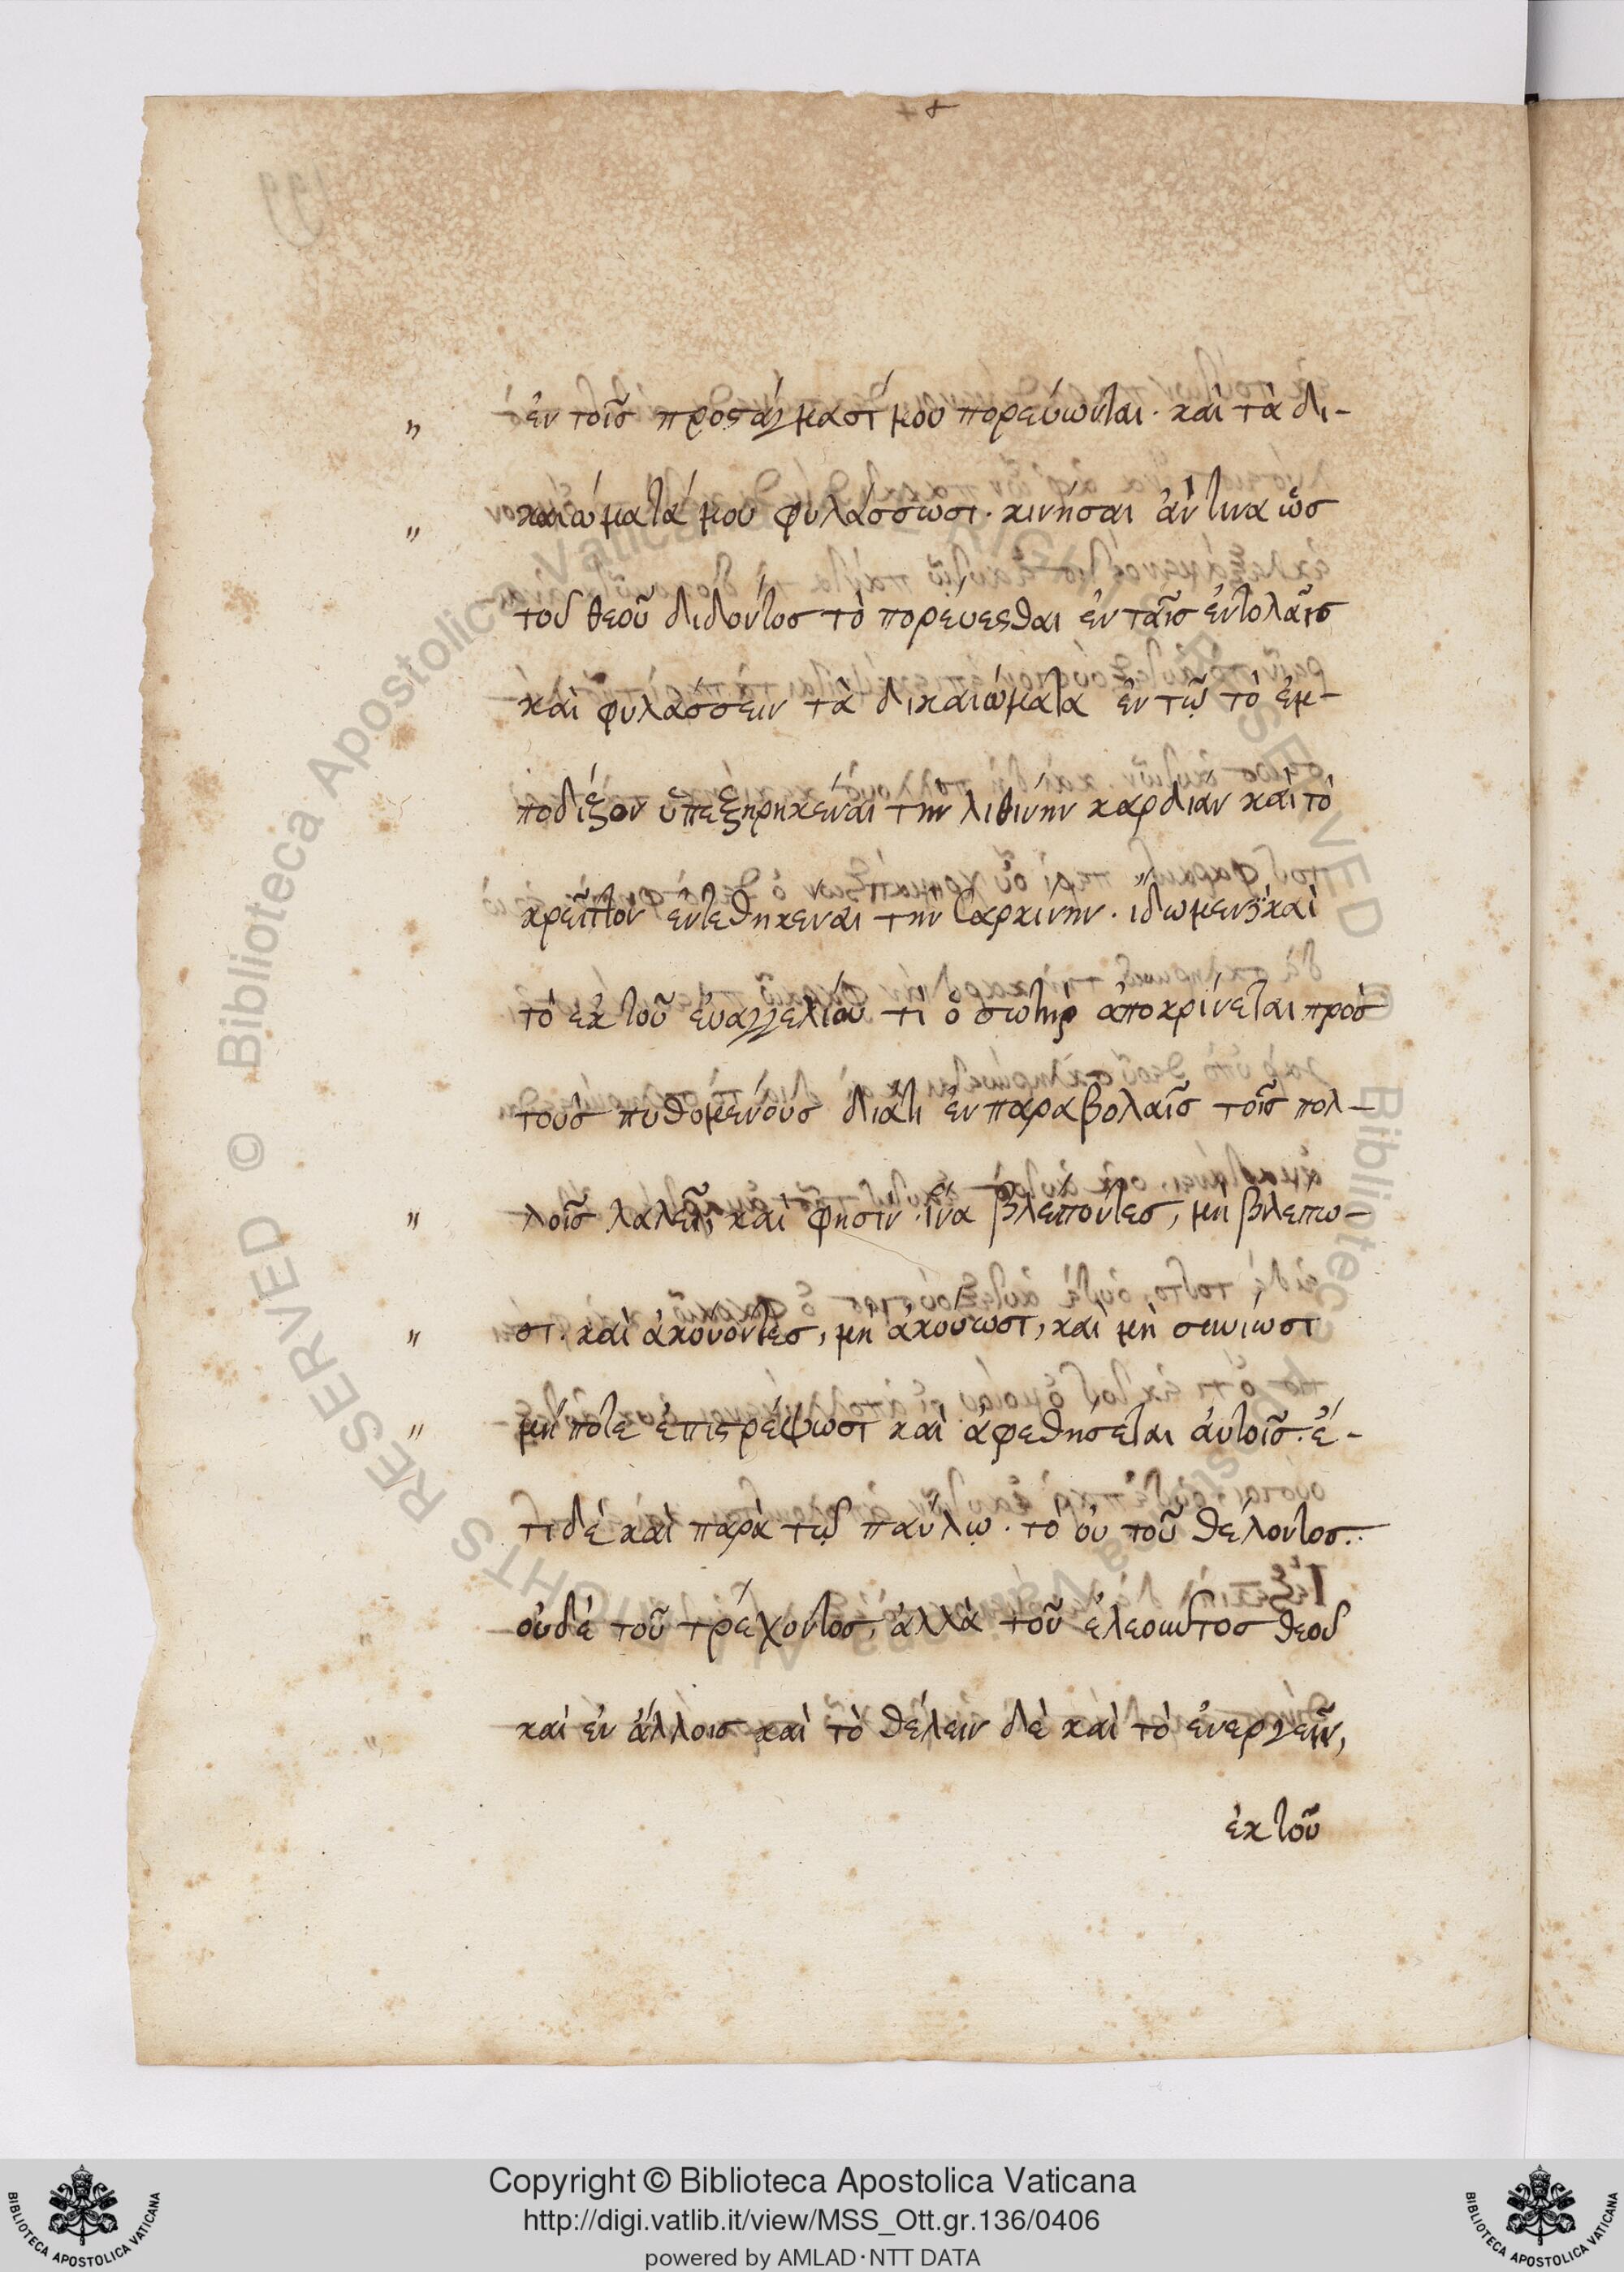 " ἐν τοῖς προςάγμασί μου πορεύωνται· καὶ τὰ δι-
" καιώματά μου φυλάσσωσι· κινήσαι ἄν τινα ὡς
τοῦ θεοῦ διδόντος τὸ πορεύεσθαι ἐν ταῖς ἐντολαῖς
καὶ φυλάσσειν τὰ δικαιώματα ἐν τῷ τὸ ἐμ-
ποδίζον ὑπεξῃρηκέναι τὴν λιθίνην καρδίαν καὶ τὸ
κρεῖττον ἐντεθηκέναι τὴν σαρκίνην· ἴδωμεν καὶ
τὸ ἐκ τοῦ ἐυαγγελίου τί ὁ σωτὴρ ἀποκρίνεται πρὸς
τοὺς πυθομένους διατί ἐν παραβολαῖς τοῖς πολ-
" λοῖς λαλεῖ, καὶ φησίν· ἵνα βλέποντες, μὴ βλέπω-
" σι· καὶ ἀκούοντες, μὴ ἀκούωσι, καὶ μὴ συνιῶσι
" μή ποτε ἐπιςρέψωσι καὶ ἀφεθήσεται ἀυτοῖς· ἔ-
τι δὲ καὶ παρὰ τῷ παύλῳ· τὸ ὀυ τοῦ θέλοντος·
οὐδὲ τοῦ τρέχοντος, ἀλλὰ τοῦ ἐλεοῦντος θεοῦ
καὶ ἐν ἄλλοις καὶ τὸ θέλειν δὲ καὶ τὸ ἐνεργεῖν,
ἐκ τοῦ
© Biblioteca Apostolica Vaticana ALL RIGHTS RESERVED
Copyright © Biblioteca Apostolica Vaticana
http://digi.vatlib.it/view/MSS_Ott.gr.136/0406
powered by AMLAD·NTT DATA
BIBLIOTECA APOSTOLICA VATICANA
BIBLIOTECA APOSTOLICA VATICANA